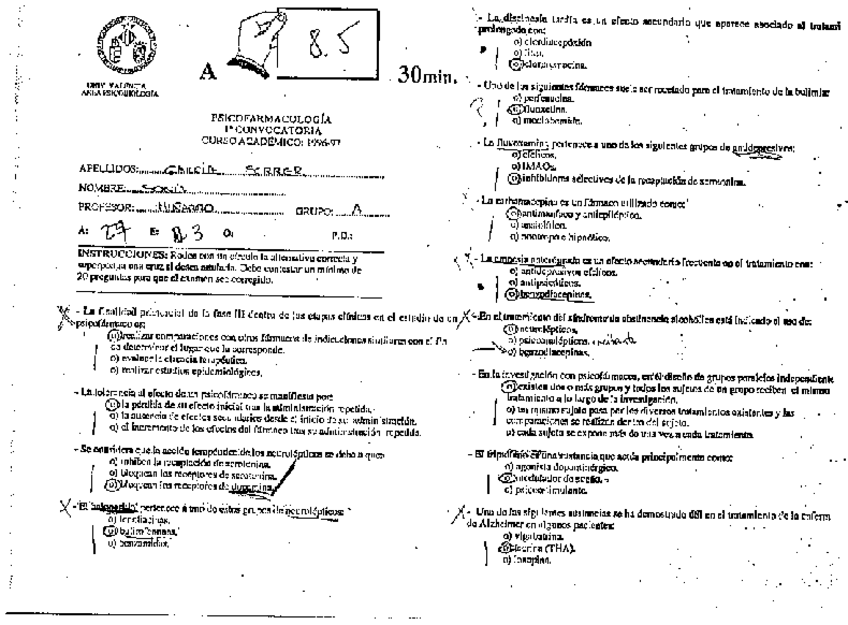 8.5
A
30min.
UNIV. VALENCIA
AREA PSICOBIOLOGÍA
PSICOFARMACOLOGÍA
1ª CONVOCATORIA
CURSO ACADÉMICO: 1996-97
APELLIDOS: GARCÍA SERRER
NOMBRE: SONIA
PROFESOR: GRUPO: A
A: 27 E: 3 O: P.D.:
INSTRUCCIONES: Rodee con un círculo la alternativa correcta y
superponga una cruz si desea anularla. Debe contestar un mínimo de
20 preguntas para que el examen sea corregido.
- La finalidad primordial de la fase III dentro de las etapas clínicas en el estudio de un
psicofármaco es:
o) realizar comparaciones con otros fármacos de indicaciones similares con el fin
de determinar el lugar que le corresponde.
o) evaluar la eficacia terapéutica.
o) realizar estudios epidemiológicos.
- La tolerancia al efecto de un psicofármaco se manifiesta por:
o) la pérdida de su efecto inicial tras la administración repetida.
o) la ausencia de efectos secundarios desde el inicio de su administración.
o) el incremento de los efectos del fármaco tras su administración repetida.
- Se considera que la acción terapéutica de los neurolépticos se debe a que:
o) inhiben la recaptación de serotonina.
o) bloquean los receptores de serotonina.
o) bloquean los receptores de dopamina.
- El haloperidol pertenece a uno de estos grupos de neurolépticos:
o) fenotiacinas.
o) butirofenonas.
o) benzamidas.
- La discinesia tardía es un efecto secundario que aparece asociado al tratami
prolongado con:
o) clordiacepóxido
o) litio.
o) clorpromacina.
- Uno de los siguientes fármacos suele ser recetado para el tratamiento de la bulimia:
o) perfenacina.
o) fluoxetina.
o) moclobemida.
- La fluvoxamina pertenece a uno de los siguientes grupos de antidepresivos:
o) cíclicos.
o) IMAOs.
o) inhibidores selectivos de la recaptación de serotonina.
- La carbamacepina es un fármaco utilizado como:
o) antimaníaco y antiepiléptico.
o) ansiolítico.
o) nootropo e hipnótico.
- La amnesia anterógrada es un efecto secundario frecuente en el tratamiento con:
o) antidepresivos cíclicos.
o) antipsicóticos.
o) benzodiacepinas.
- En el tratamiento del síndrome de abstinencia alcohólica está indicado el uso de:
o) neurolépticos.
o) psicoanalépticos.
o) benzodiacepinas.
- En la investigación con psicofármacos, en el diseño de grupos paralelos independiente
o) existen dos o más grupos y todos los sujetos de un grupo reciben el mismo
tratamiento a lo largo de la investigación.
o) un mismo sujeto pasa por los diversos tratamientos existentes y las
comparaciones se realizan dentro del sujeto.
o) cada sujeto se expone más de una vez a cada tratamiento.
- El triptófano es una sustancia que actúa principalmente como:
o) agonista dopaminérgico.
o) modulador de sueño.
o) psicoestimulante.
- Una de las siguientes sustancias se ha demostrado útil en el tratamiento de la enferm
de Alzheimer en algunos pacientes:
o) vigabatrina.
o) tacrina (THA).
o) loxapina.